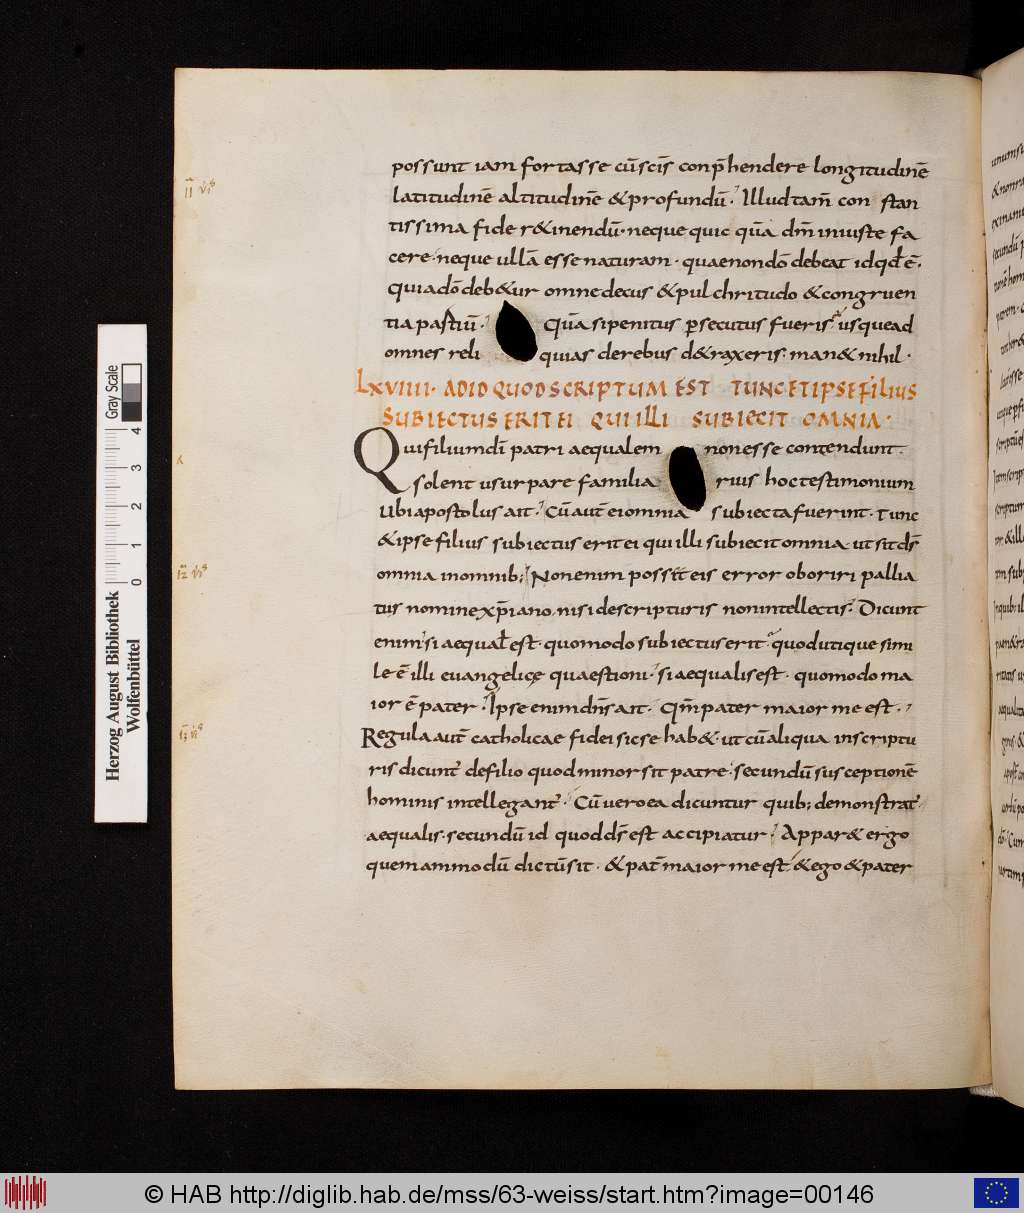 possunt iam fortasse cū scīs conp̄hendere longitudinē
latitudinē altitudinē & profundū. Illud tam̄ con stan
tissima fide r&inendū. neque quicquā dm̄ iniuste fa
cere. neque ullā esse naturam. quae non dō debeat id qd̄ ē.
quia dō deb&ur omne decus & pulchritudo & congruen
tia partiū. Quā si penitus persecutus fueris usque ad
omnes reliquias de rebus d&raxeris. man& nihil.
LXVIIII. AD ID QUOD SCRIPTUM EST TUNC ET IPSE FILIUS
SUBIECTUS ERIT EI QUI ILLI SUBIECIT OMNIA.
Qui filium dī patri aequalem non esse contendunt.
solent usurpare familiarius hoc testimonium
ubi apostolus ait. Cū aut̄ ei omnia subiecta fuerint. tunc
& ipse filius subiectus erit ei qui illi subiecit omnia ut sit ds̄
omnia in omnib; Non enim possit eis error oboriri pallia
tus nomine xp̄iano. nisi de scripturis non intellectis. Dicunt
enim. si aequal̄ est. quomodo subiectus erit. quod utique simi
le ē illi euangelicę quaestioni. si aequalis est. quomodo ma
ior ē pater. Ipse enim dn̄s ait. Qm̄ pater maior me est.
Regula aut̄ catholicae fidei sic se hab&. ut cū aliqua in scriptu
ris dicunt̄ de filio quod minor sit patre. secundū susceptionē
hominis intellegant̄. Cū uero ea dicuntur quib; demonstrat̄
aequalis. secundū id quod ds̄ est accipiatur. Appar& ergo
quemammodū dictū sit. & pat̄ maior me est. & ego & pater
Herzog August Bibliothek
Wolfenbüttel
0 1 2 3 4
Gray Scale
© HAB http://diglib.hab.de/mss/63-weiss/start.htm?image=00146